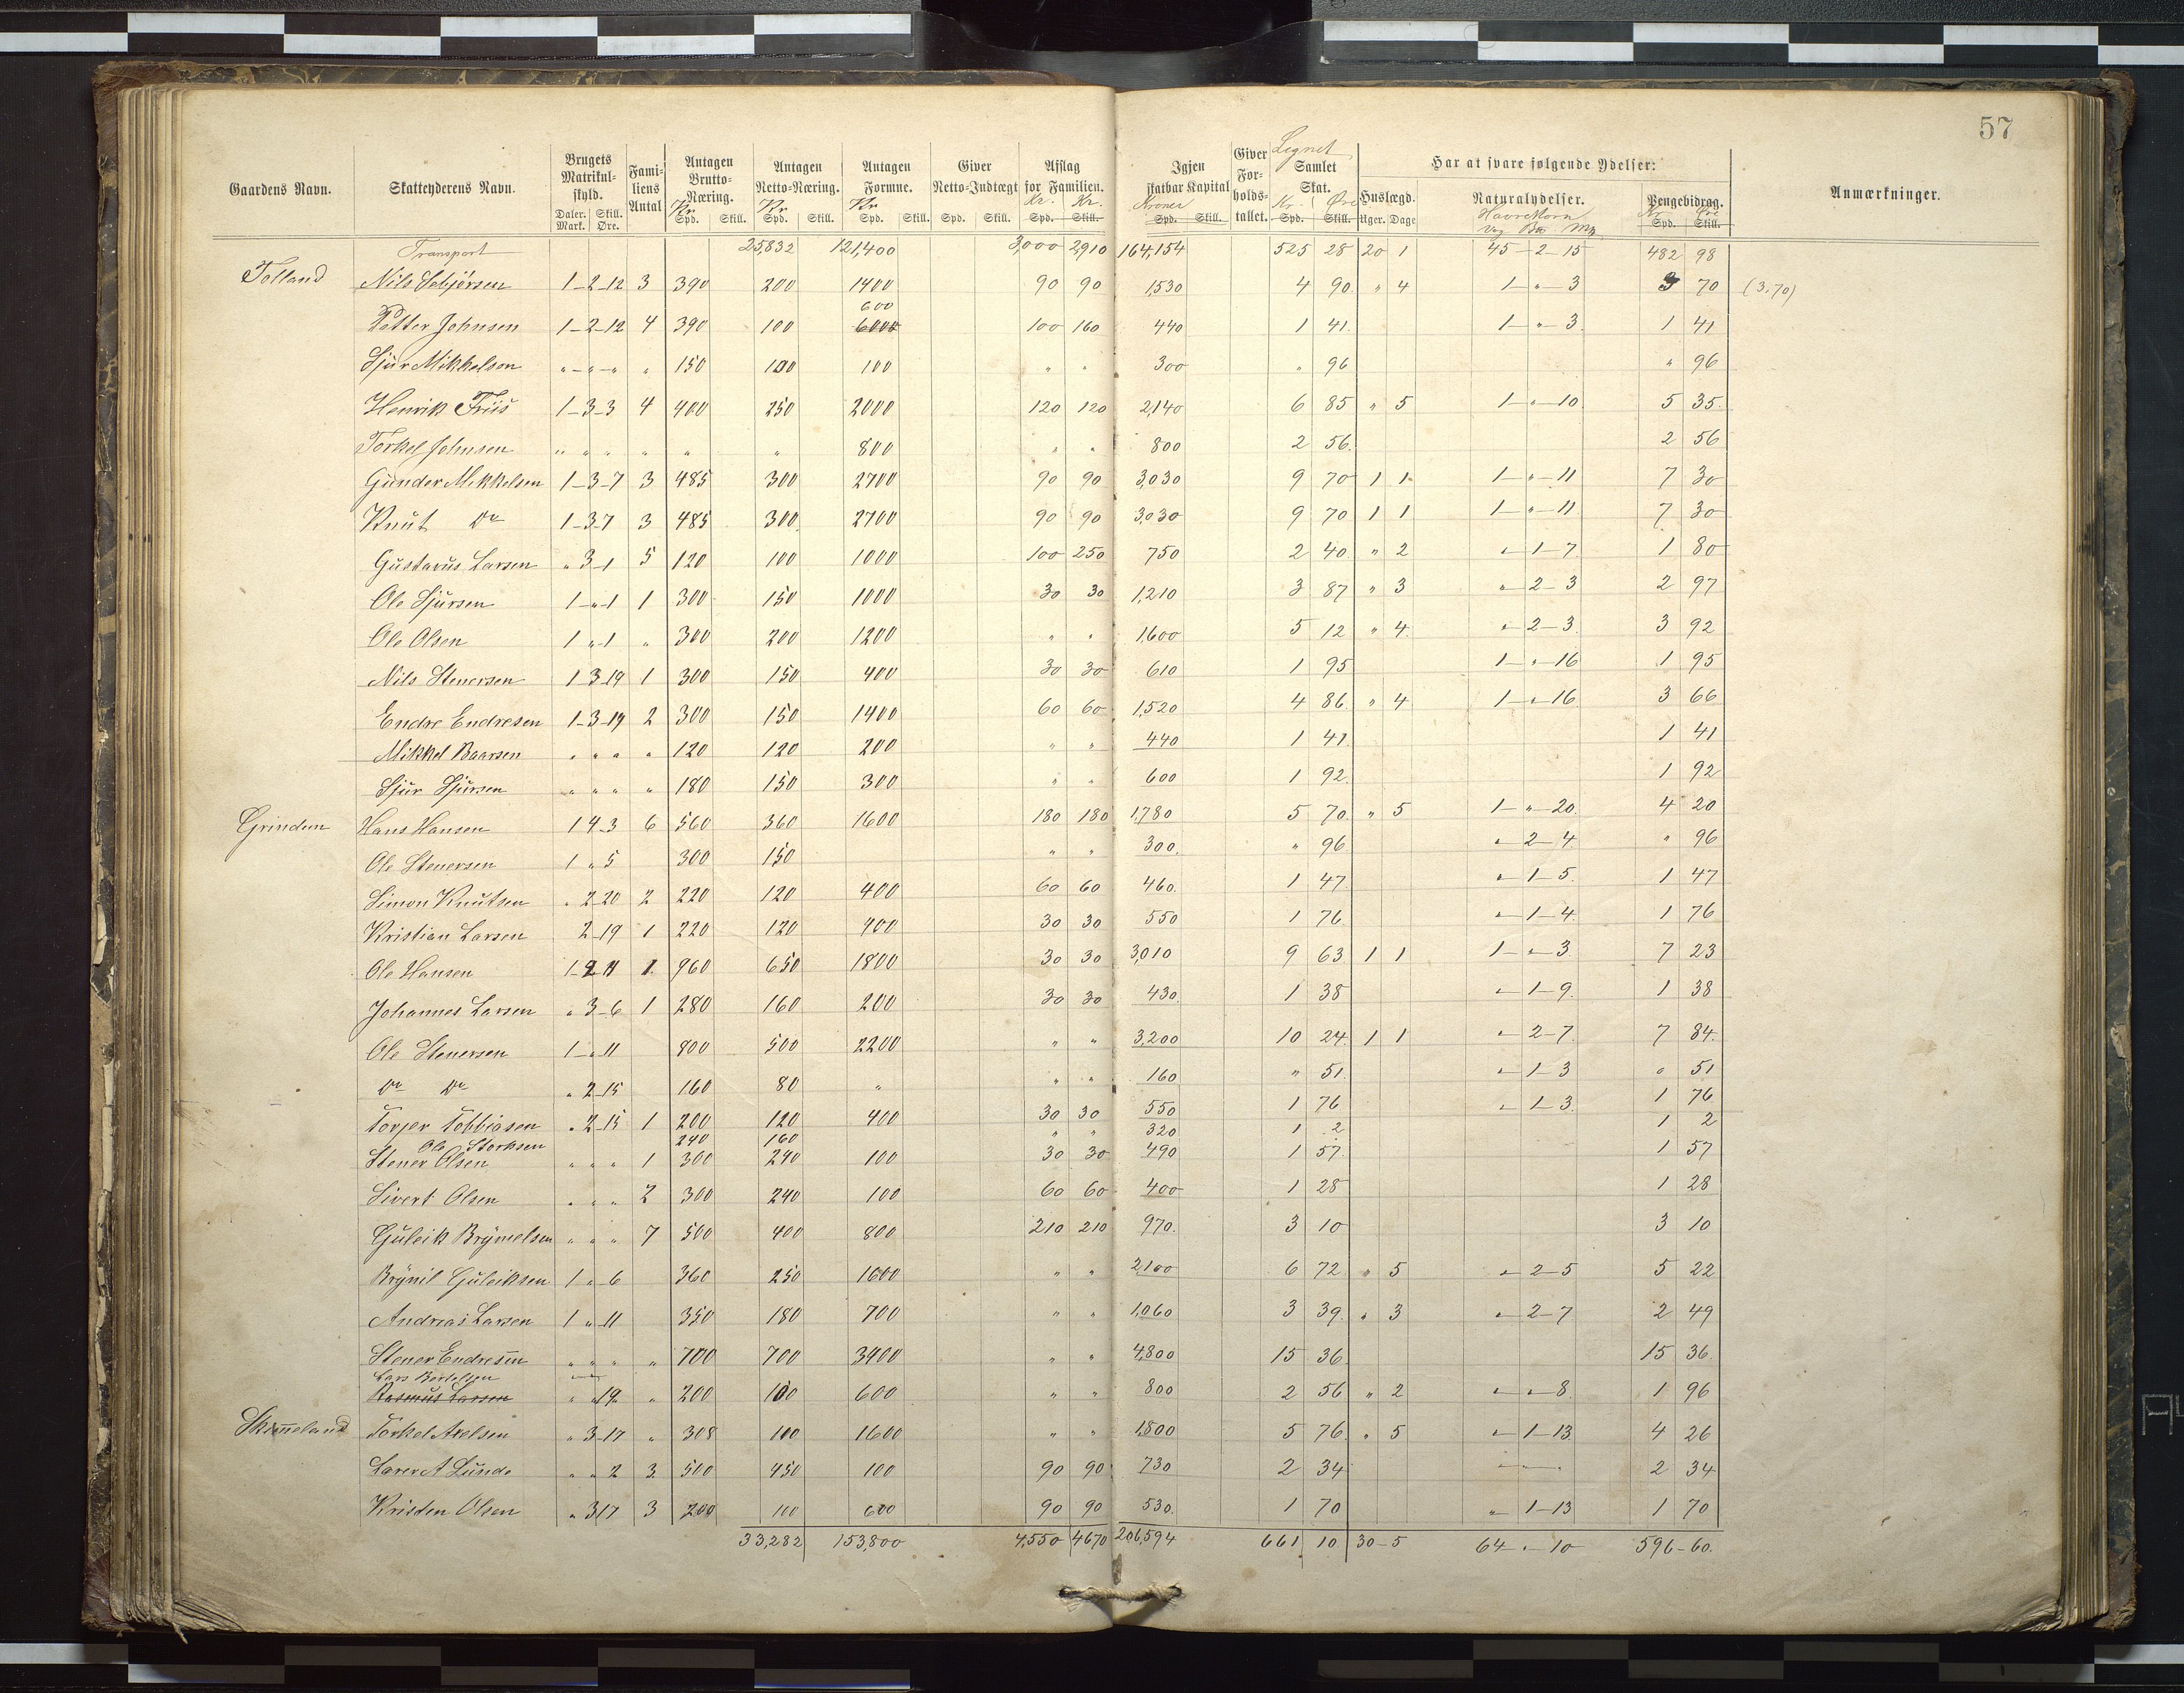 57
Gaardens Navn. Skatteyderens Navn. Brugets Matrikul-skyld. Daler. Mark. Skill. Øre. Fami-liens Antal Antagen Brutto-Næring. Kr Spd. Skill. Antagen Netto-Næring. Kr Spd. Skill. Antagen Formue. Kr Spd. Skill. Giver Netto-Indtægt Spd. Skill. Afslag for Familien. Kr. Kr. Spd. Skill. Igjen skatbar Kapital Kroner Spd. Skill. Giver For-holds-tallet. Lignet Samlet Skat. Kr. Øre Spd. Skill. Har at svare følgende Ydelser: Huslægd. Uger. Dage Naturalydelser. Havrekorn Vog Bs. Mk Pengebidrag. Kr Øre Spd. Skill. Anmærkninger.
Transport 25,832 121,400 3,000 2,910 164,154 525 28 20 1 45-2-15 482 98
Tolland Nils Sebjörsen 1-2-12 3 390 200 1400 90 90 1,530 4 90 " 4 1-"-3 3 70 (3,70)
600
Petter Johnsen 1-2-12 4 390 100 6000 100 160 440 1 41 1-"-3 1 41
Sjur Mikkelson "-"-" " 150 100 100 " " 300 " 96 " 96
Henrik Friis 1-3-3 4 400 250 2000 120 120 2,140 6 85 " 5 1-"-10 5 35
Torkel Johnsen " " " " " " 800 " " 800 2 56 2 56
Gunder Mikkelsen 1-3-7 3 485 300 2700 90 90 3,030 9 70 1 1 1-"-11 7 30
Knut Do 1-3-7 3 485 300 2700 90 90 3,030 9 70 1 1 1-"-11 7 30
Gustavus Larsen " 3-1 5 120 100 1000 100 250 750 2 40 " 2 "-1-7 1 80
Ole Sjursen 1-"-1 1 300 150 1000 30 30 1,210 3 87 " 3 "-2-3 2 97
Ole Olsen 1 "-1 " 300 200 1200 " " 1,600 5 12 " 4 "-2-3 3 92
Nils Stenersen 1 3-19 1 300 150 400 30 30 610 1 95 1-"-16 1 95
Endre Endresen 1-3-19 2 300 150 1400 60 60 1,520 4 86 " 4 1-"-16 3 66
Mikkel Baarsen " " " " 120 120 200 " " 440 1 41 1 41
Sjur Sjursen " " " " 180 150 300 " " 600 1 92 1 92
Grindem Hans Hansen 1 4-3 6 560 360 1600 180 180 1,780 5 70 " 5 1-"-20 4 20
Ole Stenersen 1 " 5 300 150 " " 300 " 96 "-2-4 " 96
Simon Knutsen " 2-20 2 220 120 400 60 60 460 1 47 "-1-5 1 47
Kristian Larsen 2-19 1 220 120 400 30 30 550 1 76 "-1-4 1 76
Ole Hansen 1-2-11 1 960 650 1800 30 30 3,010 9 63 1 1 1-"-3 7 23
Johannes Larsen " 3-6 1 280 160 200 30 30 430 1 38 "-1-9 1 38
Ole Stenersen 1-"-11 800 500 2200 " " 3,200 10 24 1 1 "-2-7 7 84
Do Do " 2-15 160 80 " " " 160 " 51 "-1-3 " 51
Torjer Tobbiasen " 2-15 1 200 120 400 30 30 550 1 76 "-1-3 1 76
Ole Storksen 240 160 " " 320 1 2 1 2
Stener Olsen " " " 1 300 240 100 30 30 490 1 57 1 57
Sivert Olsen " " " 2 300 240 100 60 60 400 1 28 1 28
Guleik Brynielsen " " " 7 500 400 800 210 210 970 3 10 3 10
Brynil Guleiksen 1 " 6 360 250 1600 " " 2,100 6 72 " 5 "-2-5 5 22
Andreas Larsen 1 " 11 350 180 700 " " 1,060 3 39 " 3 "-2-7 2 49
Stener Endresen " " " " 700 700 3400 " " 4,800 15 36 15 36
Lars Bertelsen
Rasmus Larsen " " 19 " 200 100 600 " " 800 2 56 " 2 "-"-8 1 96
Skinneland Torkel Axelsen " 3-17 " 308 100 1600 " " 1,800 5 76 " 5 "-1-13 4 26
Laver A Lunde " " 2 3 500 450 100 90 90 730 2 34 2 34
Kristen Olsen " 3 17 3 200 100 600 90 90 530 1 70 "-1-13 1 70
33,282 153,800 4,550 4670 206,594 661 10 30-5 64-"-10 596-60